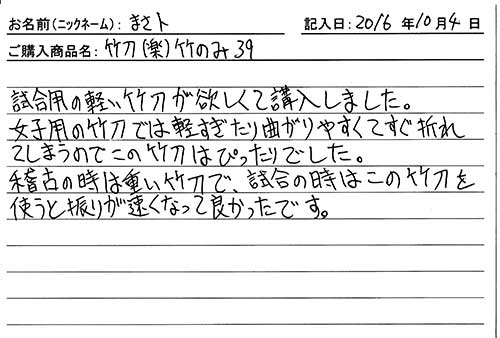 お名前(ニックネーム): まさト 記入日: 2016 年 10 月 4 日
ご購入商品名: 竹刀(楽)竹のみ 39
試合用の軽い竹刀が欲しくて講入しました。
女子用の竹刀では軽すぎたり曲がりやすくてすぐ折れ
てしまうのでこの竹刀はぴったりでした。
稽古の時は重い竹刀で、試合の時はこの竹刀を
使うと振りが速くなって良かったです。